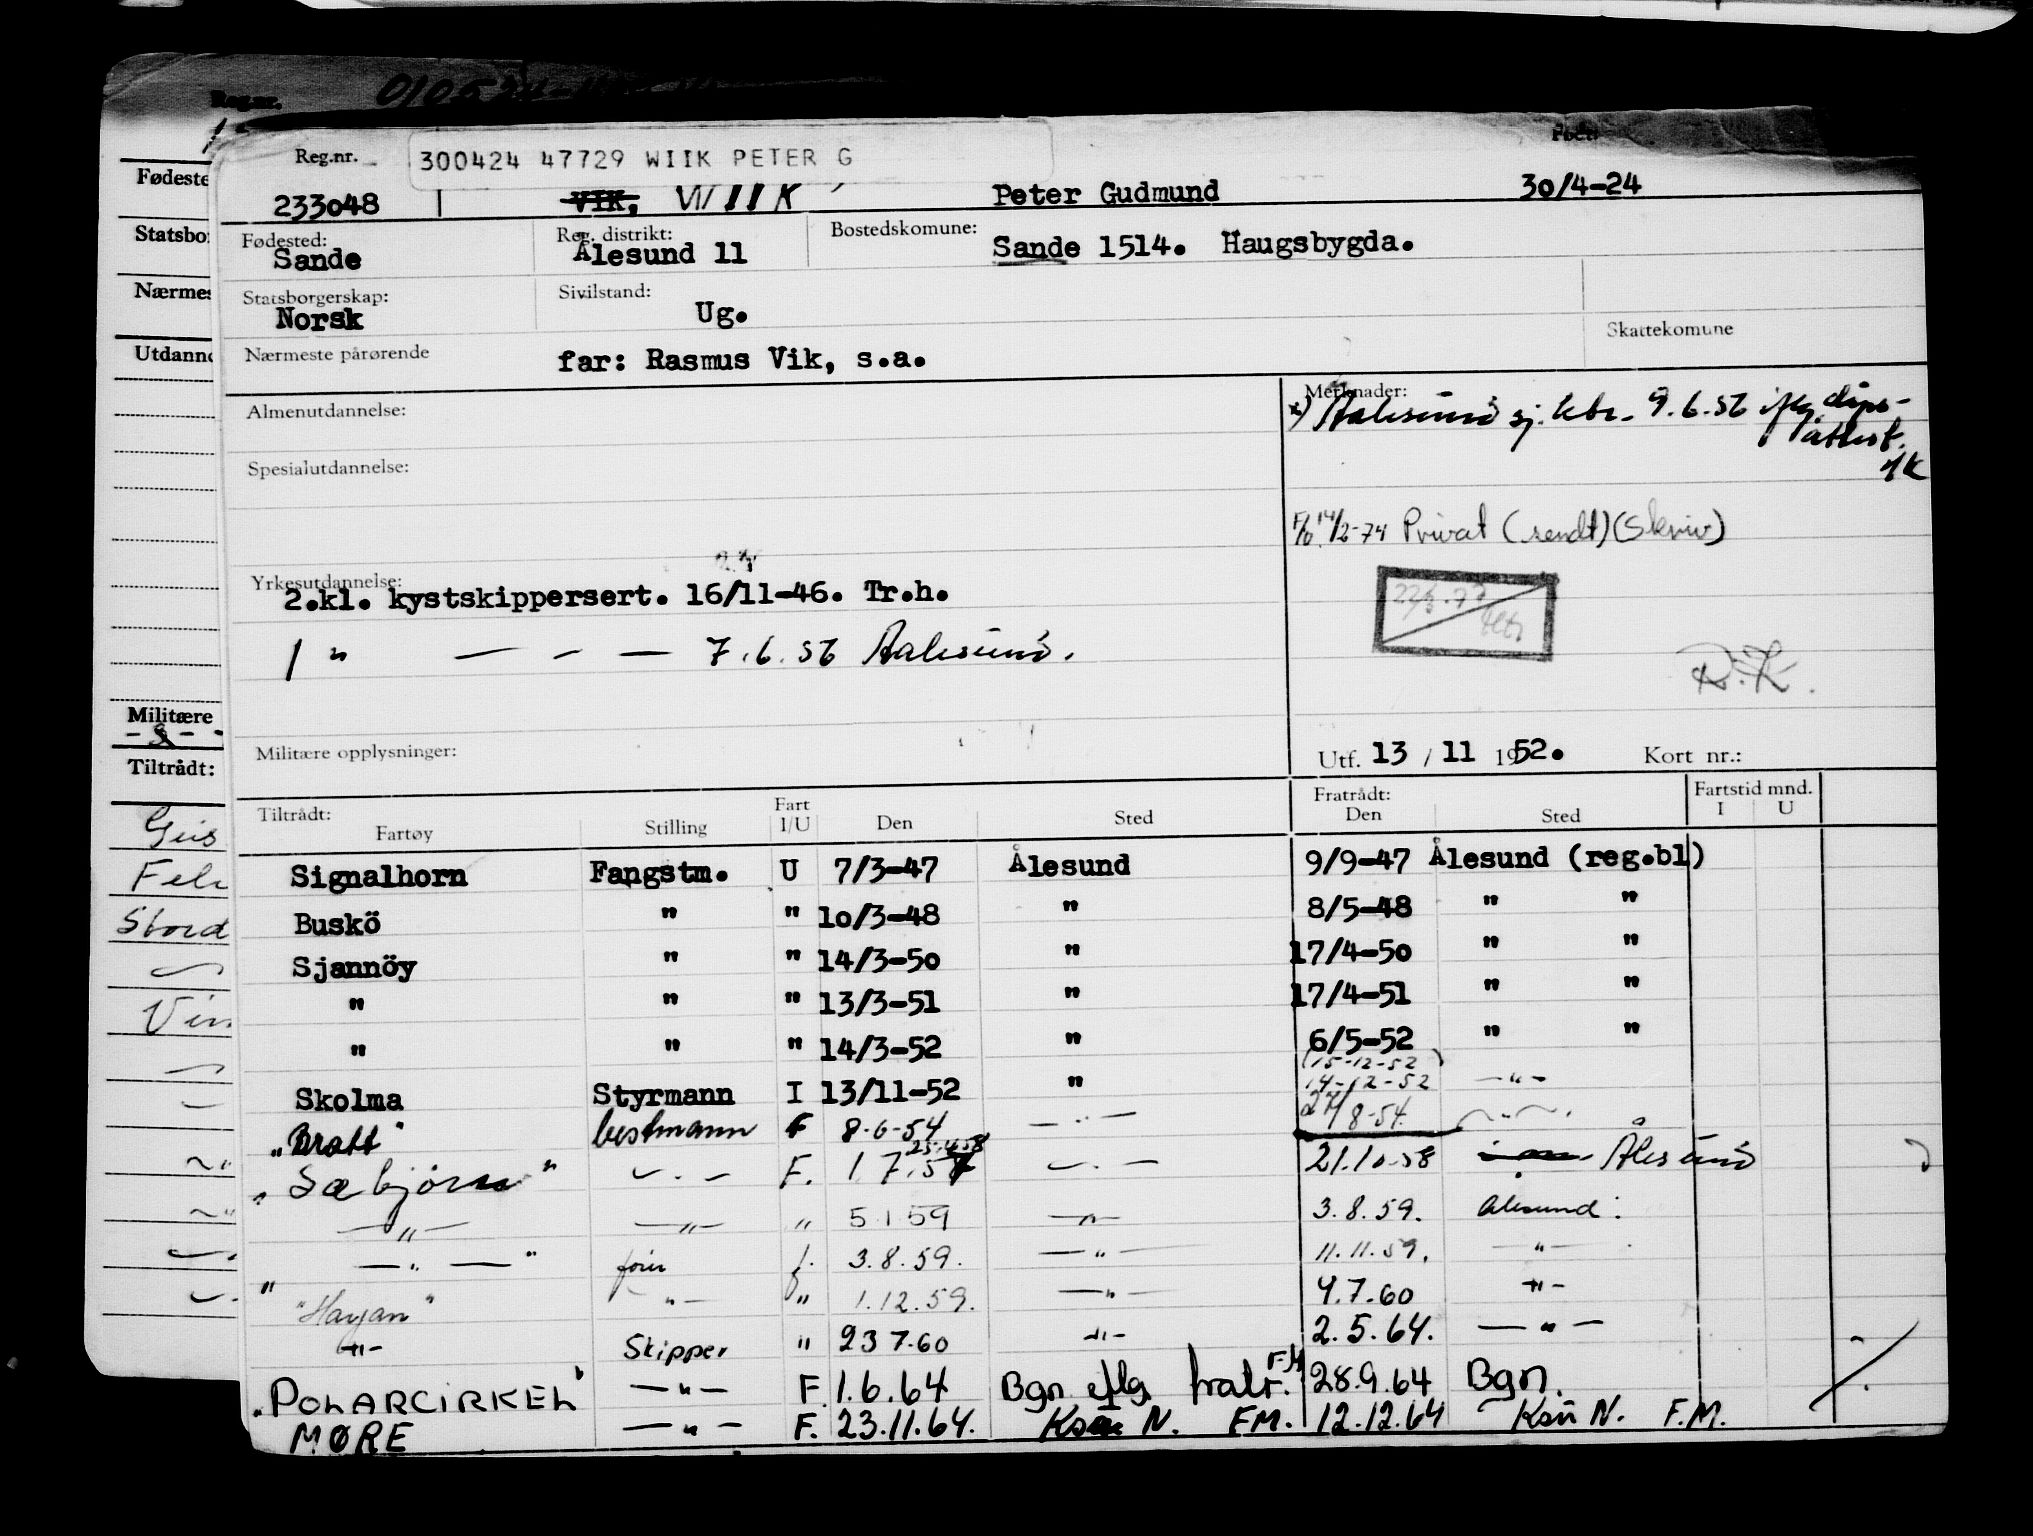 Reg.nr.
Reg.nr. 300424 47729 WIIK PETER G Født:
233048 VIK, WIIK Peter Gudmund 30/4-24
Fødested: Sande Reg. distrikt: Ålesund 11 Bostedskomune: Sande 1514. Haugsbygda.
Statsborgerskap: Norsk Sivilstand: Ug.
Skattekomune
Nærmeste pårørende far: Rasmus Vik, s.a.
Almenutdannelse: Merknader:
x) Aalesund sj. 9.6.56 iflg. dåps-
attest.
Spesialutdannelse:
14/2-74 Privat (sendt) (Skriv)
Yrkesutdannelse:
2.kl. kystskippersert. 16/11-46. Tr.h.
1 " — - — 7.6.56 Aalesund.
R.K.
Militære opplysninger: Utf. 13 / 11 1952. Kort nr.:
Tiltrådt: Fratrådt: Fartstid mnd.
Fartøy Stilling Fart I/U Den Sted Den Sted I U
Signalhorn Fangstm. U 7/3-47 Ålesund 9/9-47 Ålesund (reg.bl)
Buskö " " 10/3-48 " 8/5-48 " "
Sjannöy " " 14/3-50 " 17/4-50 " "
" " " 13/3-51 " 17/4-51 " "
" " " 14/3-52 " 6/5-52 " "
(15-12-52)
Skolma Styrmann I 13/11-52 " 14-12-52 -"-
"Bratt" bestmann F 8-6-54 -"- 27/8-54. -"-
25.4.58
"Sæbjørn" -"- F. 1.7.57 -"- 21.10-58 Ålesund
-"- -"- " 5 1 59 -"- 3.8.59. Ålesund.
-"- f. 3.8.59. -"- 11.11.59. -"-
"Havjan" -"- " 1.12.59. -"- 4.7.60 -"-
-"- Skipper " 23 7.60 -"- 2.5.64. -"-
"POLARCIRKEL" -"- F. 1.6.64 Bgn iflg fratr. F.M 28.9.64 Bgn.
MØRE -"- F. 23.11.64. Ksu N. F.M. 12.12.64 Ksu N. F.M.
Fødeste
Statsbor
Nærmes
Utdanne
Militære
Tiltrådt:
Stord